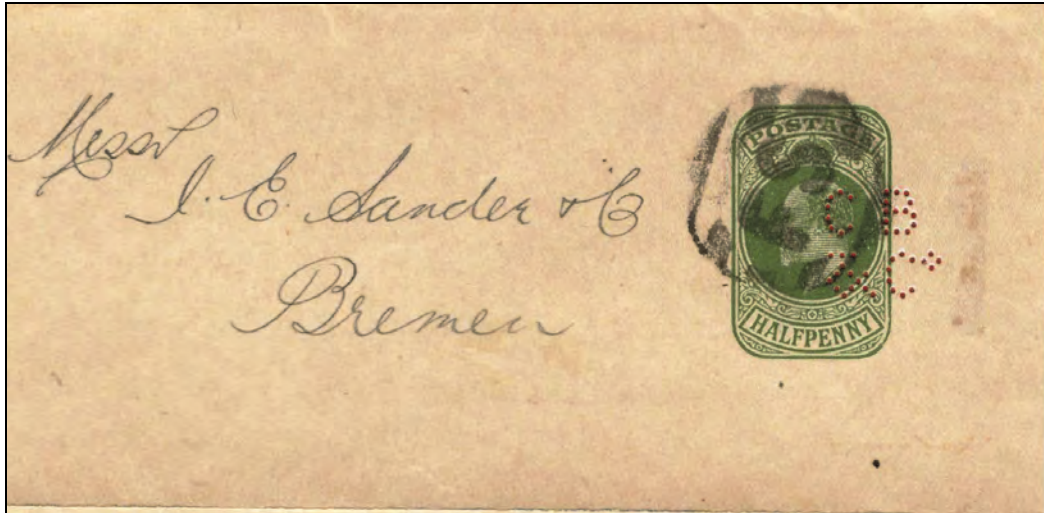 Messrs
J. E. Sander & Co
Bremen
POSTAGE
HALFPENNY
C B
& Co